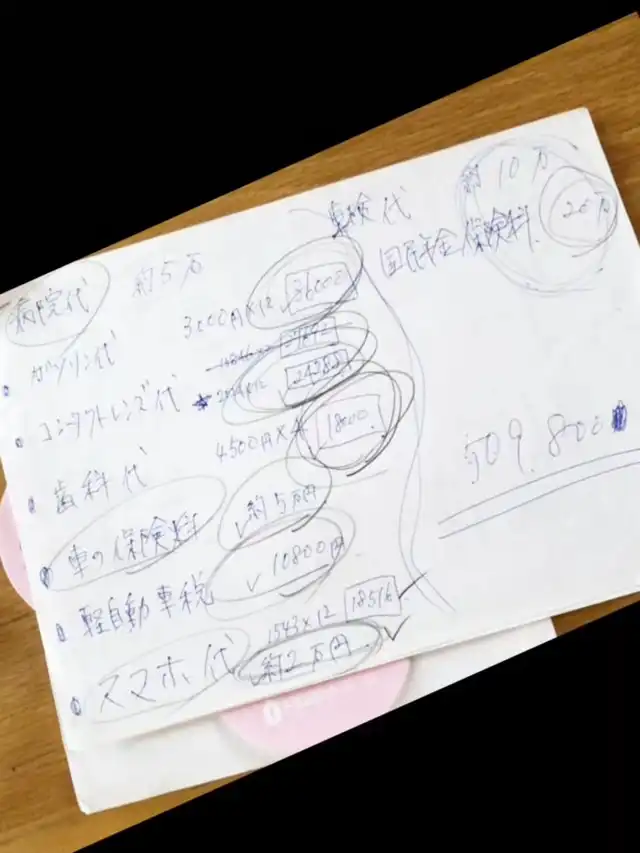 病院代 約5万
ガソリン代 3000円×12 36000
コンタクトレンズ代
歯科代 4500円×4 18000
車の保険料 約5万円
軽自動車税 10800円
スマホ代 1543×12 18516
約2万円
車検代 約10万
国民年金保険料 20万
509.800